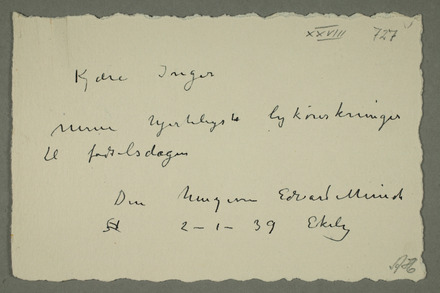 XXVIII 727
Kjære Inger
mine hjerteligste lykønskninger
til fødselsdagen
Din hengivne Edvard Munch
2-1-39 Ekely